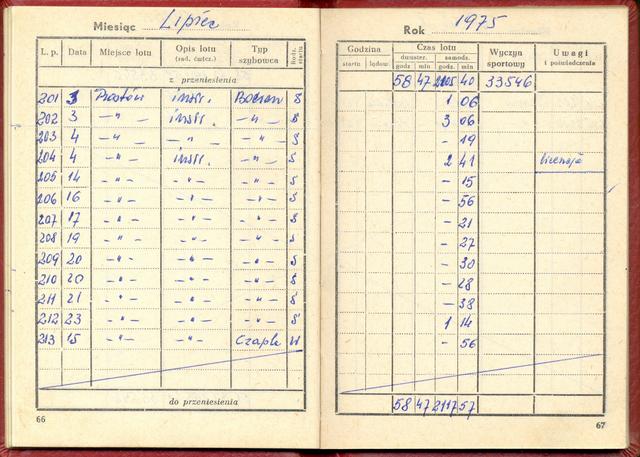 Miesiąc Lipiec
L. p. Data Miejsce lotu Opis lotu (zad. ćwicz.) Typ szybowca Rodz. startu
z przeniesienia
201 3 instr. Bocian S
202 3 — " — instr. — " — S
203 4 — " — — " — — " — S
204 4 — " — instr. — " — S
205 14 — " — — " — — " — S
206 16 — " — — " — — " — S
207 17 — " — — " — — " — S
208 19 — " — — " — — " — S
209 20 — " — — " — — " — S
210 20 — " — — " — — " — S
211 21 — " — — " — — " — S
212 23 — " — — " — — " — S
213 15 — " — — " — Czapla W
do przeniesienia
66
Rok 1975
Godzina Czas lotu Wyczyn sportowy Uwagi i poświadczenia
startu lądow. dwuster. samodz.
godz min godz. min
58 47 2105 40 33546
1 06
3 06
- 19
2 41 licencja
- 15
- 56
- 21
- 27
- 30
- 28
- 38
1 14
- 56
58 47 2117 57
67